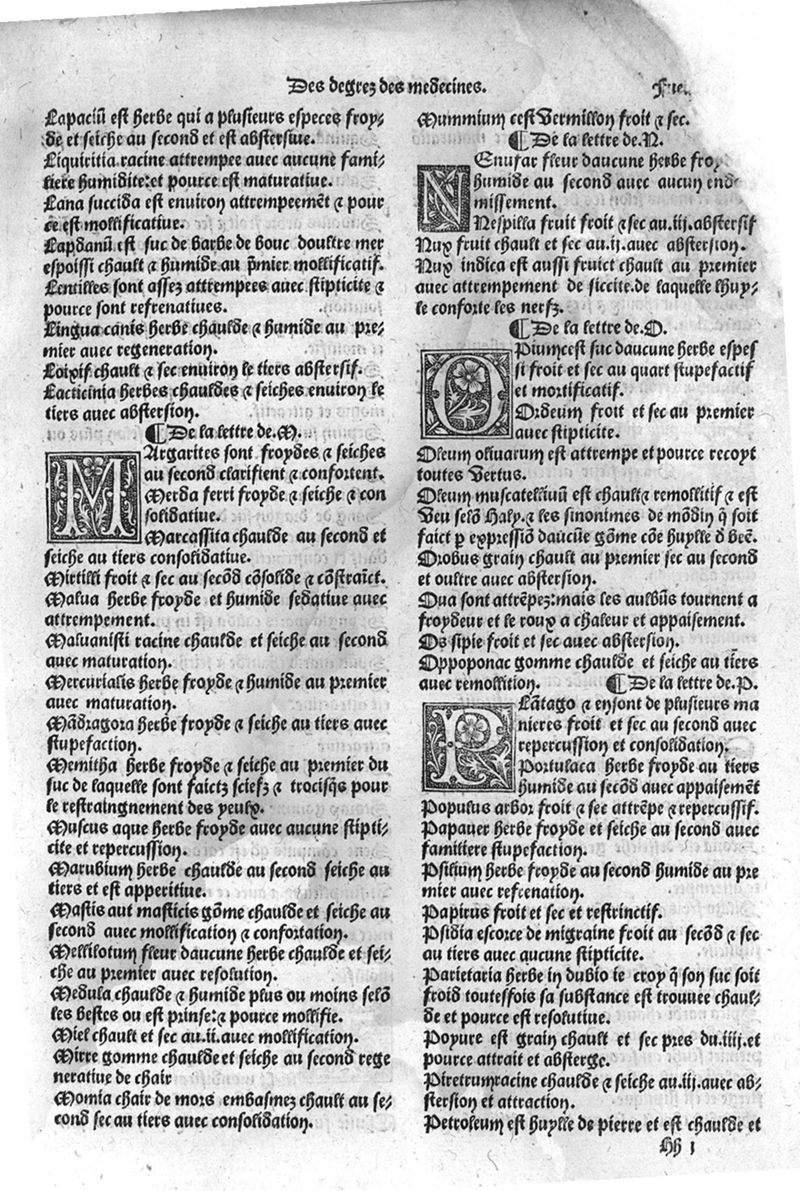 Des degrez des medecines.
Fue.
Lapaciū est herbe qui a plusieurs especes froy-
de et seiche au second et est abstersiue.
Liquiritia racine attrempee auec aucune fami-
liere humidite: et pource est maturatiue.
Lana succida est enuiron attrempeemēt ⁊ pour
ce est mollificatiue.
Lapdanū est suc de barbe de bouc doultre mer
espoissi chault ⁊ humide au p̄mier mollificatif.
Lentilles sont assez attrempees auec stipticite ⁊
pource sont refrenatiues.
Lingua canis herbe chaulde ⁊ humide au pre-
mier auec regeneration.
Loixif chault ⁊ sec enuiron le tiers abstersif.
Lacticinia herbes chauldes ⁊ seiches enuiron le
tiers auec abstersion.
¶ De la lettre de. M.
MArgarites sont froydes ⁊ seiches
au second clarifient ⁊ confortent.
Merda ferri froyde ⁊ seiche ⁊ con
solidatiue.
Marcassita chaulde au second et
seiche au tiers consolidatiue.
Mirtilli froit ⁊ sec au secōd cōsolide ⁊ cōstraīct.
Malua herbe froyde et humide sedatiue auec
attrempement.
Maluanisti racine chaulde et seiche au second
auec maturation.
Mercurialis herbe froyde ⁊ humide au premier
auec maturation.
Mādragora herbe froyde ⁊ seiche au tiers auec
stupefaction.
Memitha herbe froyde ⁊ seiche au premier du
suc de laquelle sont faictz sciefz ⁊ trocisq̄s pour
le restraingnement des yeulx.
Muscus aque herbe froyde auec aucune stipti-
cite et repercussion.
Marubium herbe chaulde au second seiche au
tiers et est apperitiue.
Mastis aut masticis gōme chaulde et seiche au
second auec mollification ⁊ confortation.
Mellilotum fleur daucune herbe chaulde et sei-
che au premier auec resolution.
Medula chaulde ⁊ humide plus ou moins selō
les bestes ou est prinse: ⁊ pource mollifie.
Miel chault et sec au. ii. auec mollification.
Mirre gomme chaulde et seiche au second rege
neratiue de chair
Momia chair de mors embasmez chault au se-
cond sec au tiers auec consolidation.
Mummium cest Vermillon froit ⁊ sec.
¶ De la lettre de. N.
NEnufar fleur daucune herbe froy
humide au second auec aucun end-
missement.
Nespilla fruit froit ⁊ sec au. iij. abstersif
Nux fruit chault et sec au. ij. auec abstersion.
Nux indica est aussi fruict chault au premier
auec attrempement de siccite. de laquelle lhuy-
le conforte les nerfz.
¶ De la lettre de. O.
OPiumcest suc daucune herbe espes
si froit et sec au quart stupefactif
et mortificatif.
Ordeum froit et sec au premier
auec stipticite.
Oleum oliuarum est attrempe et pource recoyt
toutes Vertus.
Oleum muscatellinū est chault ⁊ remollitif ⁊ est
Veu selō Haly. ⁊ les sinonimes de mōdin q̄ soit
faict p expressiō daucūe gōme cōe huylle d beē.
Orobus grain chault au premier sec au second
et oultre auec abstersion.
Oua sont attrēpez: mais les aulbūs tournent a
froydeur et le roux a chaleur et appaisement.
Os sipie froit et sec auec abstersion.
Oppoponac gomme chaulde et seiche au tiers
auec remollition. ¶ De la lettre de. P.
PLātago ⁊ en sont de plusieurs ma
nieres froit et sec au second auec
repercussion et consolidation.
Portulaca herbe froyde au tiers
humide au secōd auec appaisemēt
Populus arbor froit ⁊ sec attrēpe ⁊ repercussif.
Papauer herbe froyde et seiche au second auec
familiere stupefaction.
Psilium herbe froyde au second humide au pre
mier auec refrenation.
Papirus froit et sec et restrinctif.
Psidia escorce de migraine froit au secōd ⁊ sec
au tiers auec aucune stipticite.
Parietaria herbe in dubio ie croy q̄ son suc soit
froid toutesfois sa substance est trouuee chaul-
de et pource est resolutiue.
Poyure est grain chault et sec pres du. iiij. et
pource attrait et absterge.
Piretrumracine chaulde ⁊ seiche au. iij. auec ab-
stersion et attraction.
Petroleum est huylle de pierre et est chaulde et
Hh j